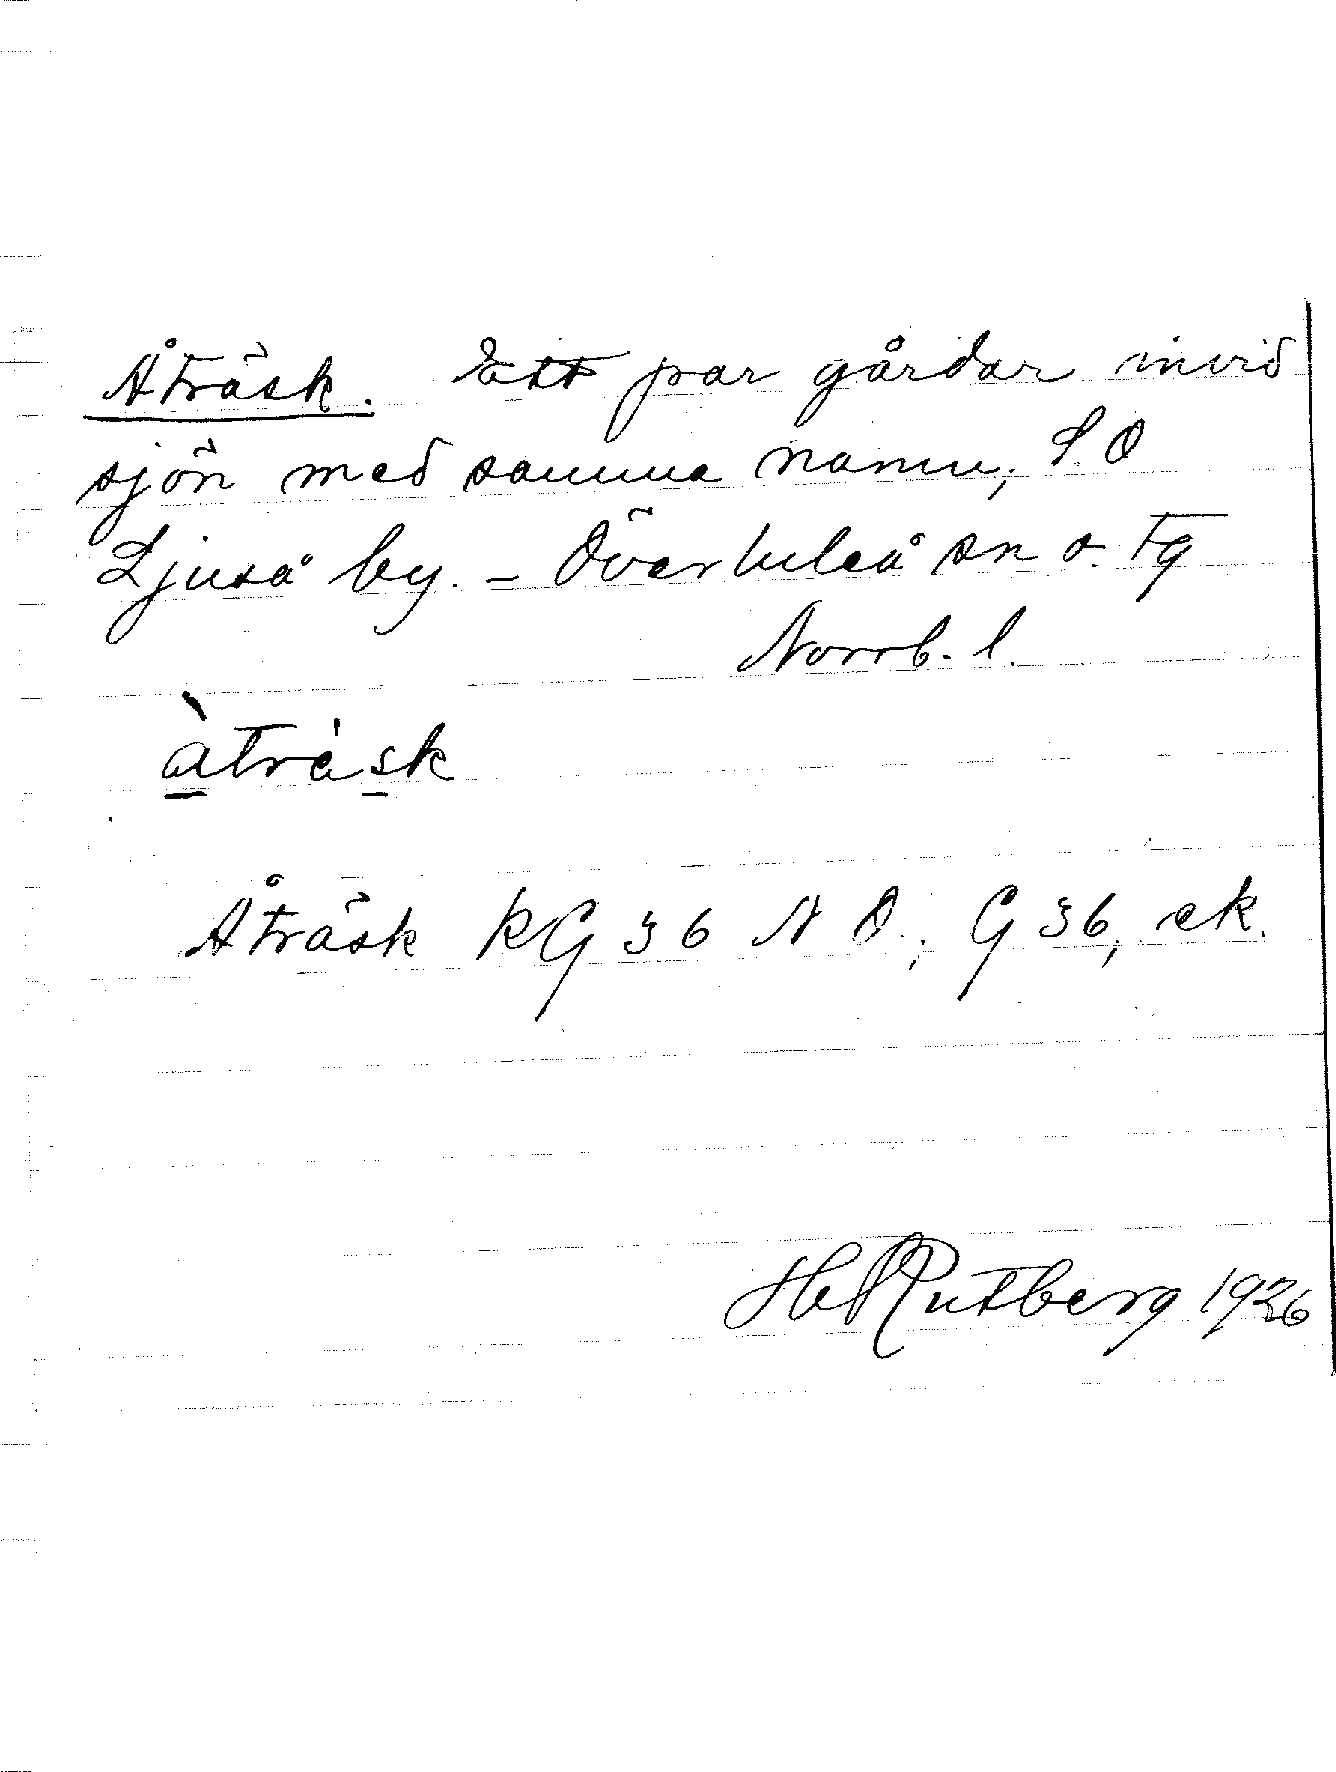 Åträsk. Ett par gårdar invid
sjön med samma namn, S.O
Ljuså by. – Överluleå sn o. tg
Norrb. l.
àtrask
Åträsk RG 36 N O; G 36, ek.
H Rutberg 1926